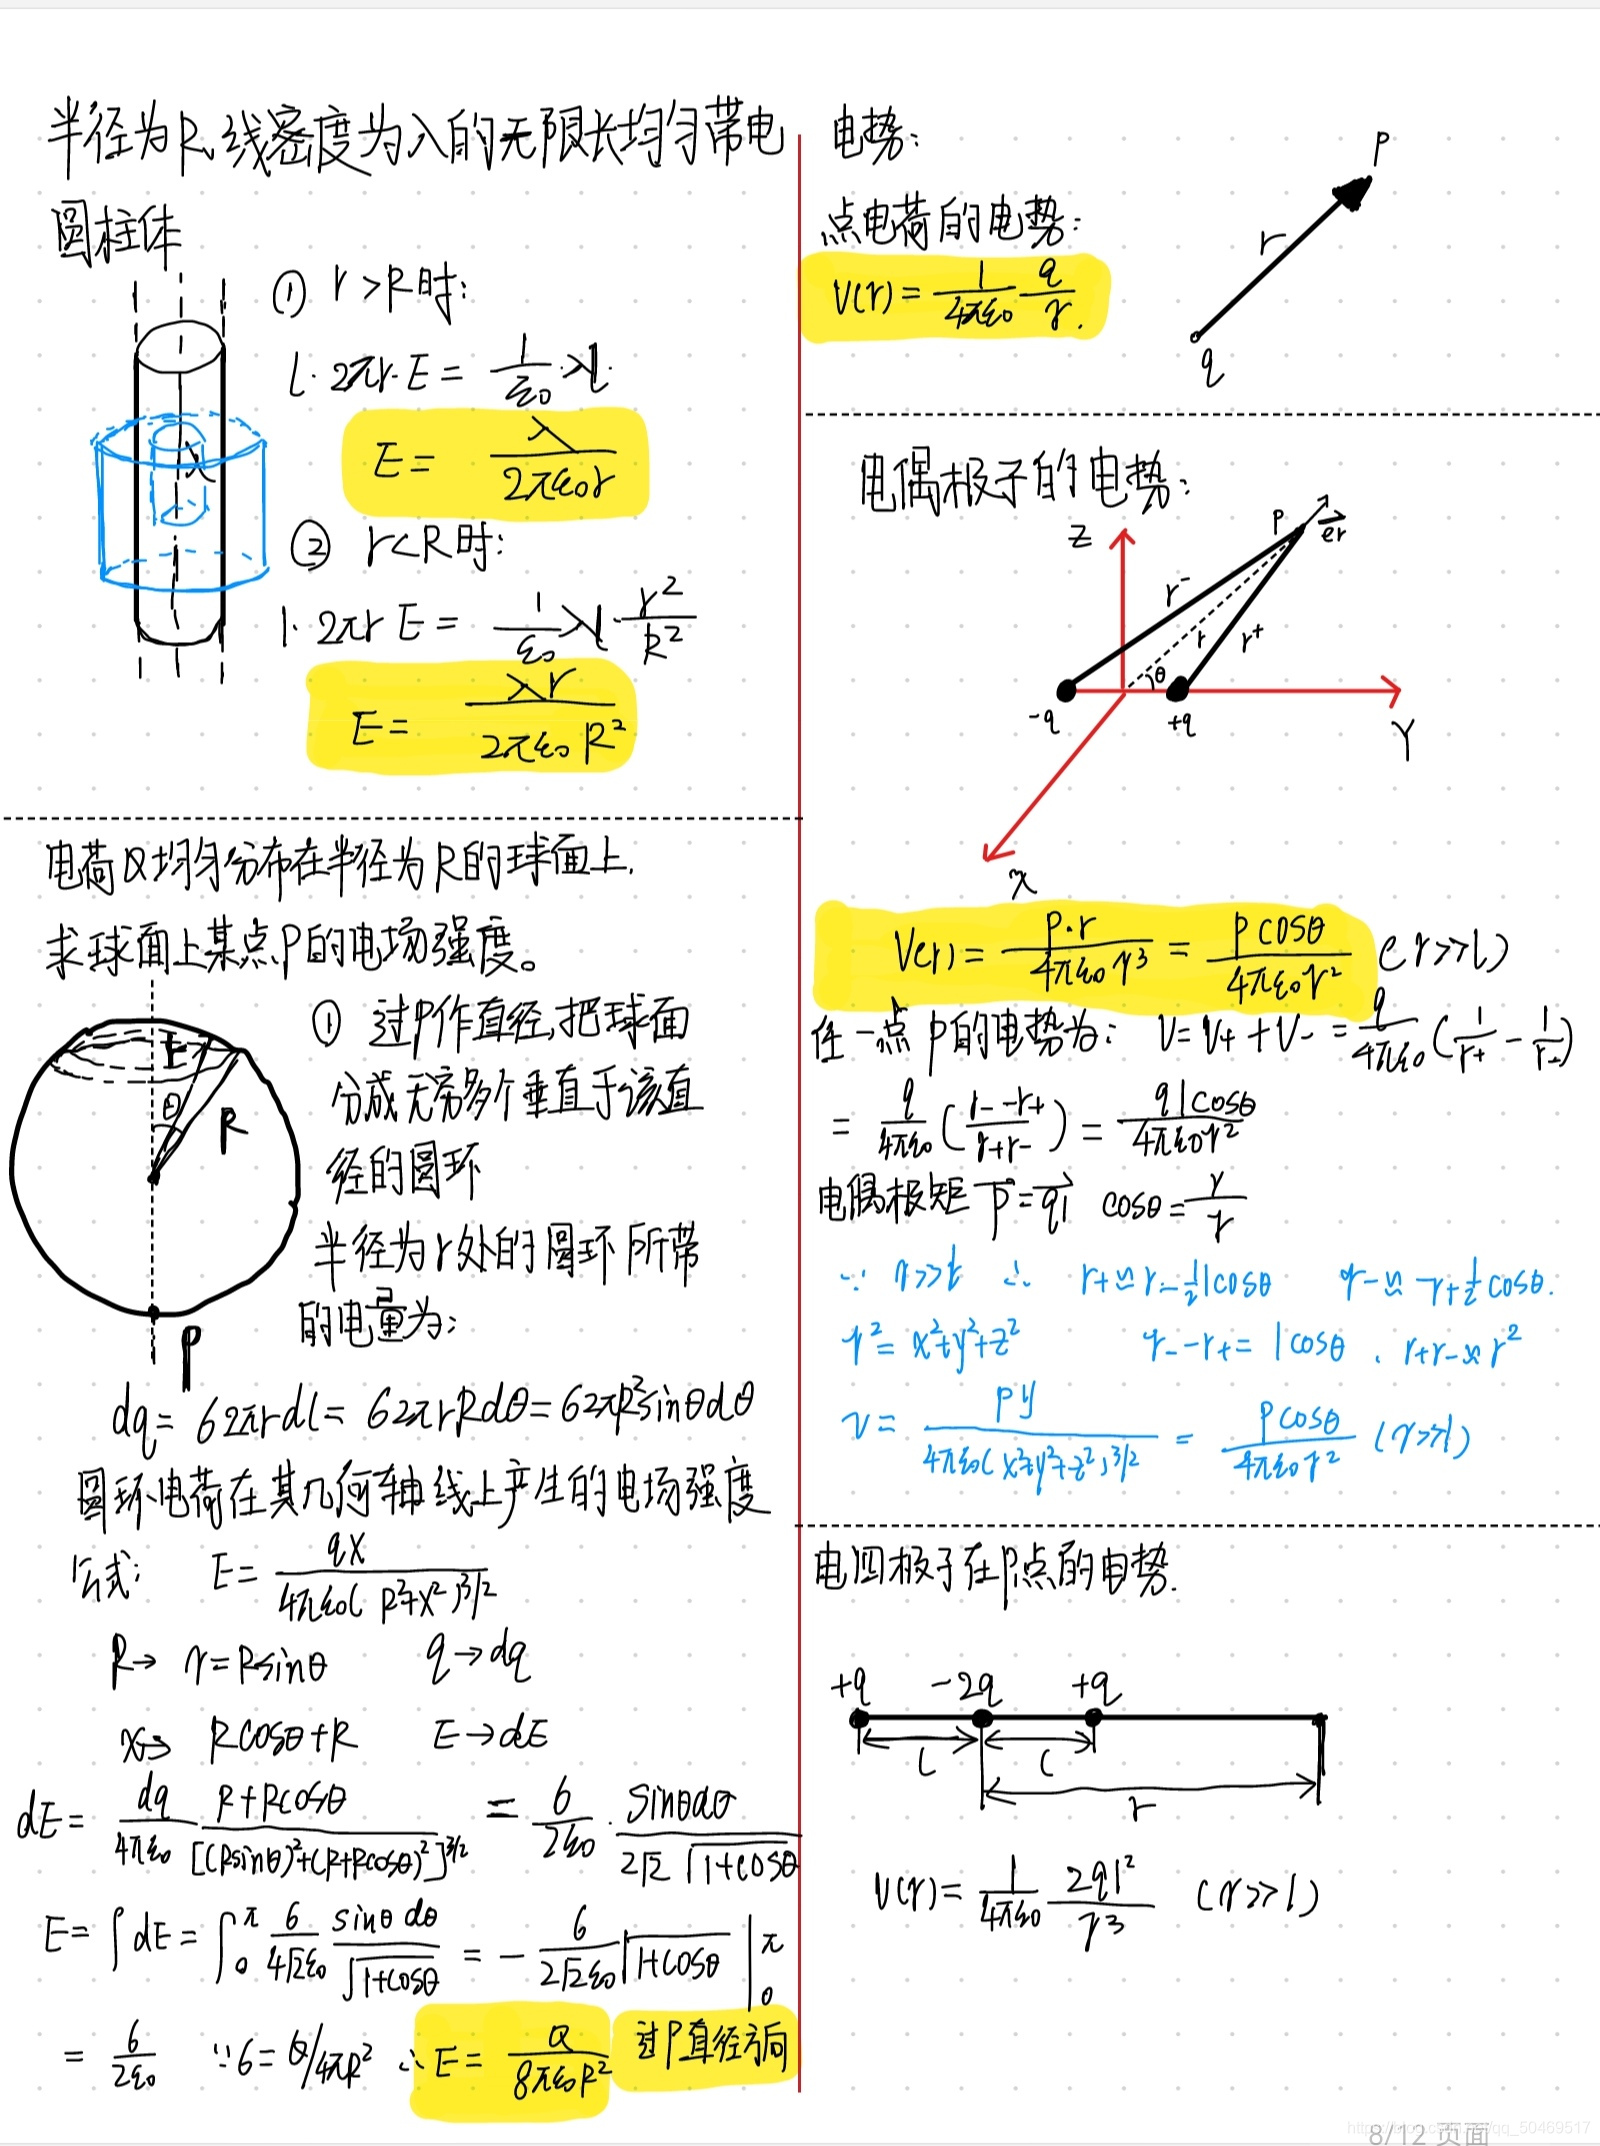 半径为R、线密度为λ的无限长均匀带电
圆柱体
① r>R时:
l·2πr·E = 1/ε₀ · λl.
E = λ/2πε₀r
λ
② r<R时:
l·2πr E = 1/ε₀ λl · r²/R²
E = λr/2πε₀R²
电荷Q均匀分布在半径为R的球面上.
求球面上某点P的电场强度。
① 过P作直径,把球面
分成无穷多个垂直于该直
径的圆环
半径为r处的圆环所带
的电量为:
r
θ
R
P
dq = б2πrdl = б2πrRdθ = б2πR²sinθdθ
圆环电荷在其几何轴线上产生的电场强度
公式: E = qx/4πε₀(R²+x²)^3/2
R→ r=Rsinθ q→dq
x→ Rcosθ+R E→dE
dE = dq/4πε₀ (R+Rcosθ)/[(Rsinθ)²+(R+Rcosθ)²]^3/2 = б/2ε₀ · sinθdθ/2√2 √1+cosθ
E = ∫dE = ∫₀^π б/4√2ε₀ sinθdθ/√1+cosθ = - б/2√2ε₀ √1+cosθ |₀^π
= б/2ε₀ ∵б=Q/4πR² ∴E = Q/8πε₀R² 过P直径方向
电势:
点电荷的电势:
V(r) = 1/4πε₀ q/r.
P
r
q
电偶极子的电势:
Z
P
er
r-
r
r+
θ
-q
+q
Y
x
V(r) = p·r/4πε₀r³ = pcosθ/4πε₀r² (r>>l)
任一点P的电势为: V=V₊+V₋ = q/4πε₀(1/r₊ - 1/r₋)
= q/4πε₀(r₋-r₊/r₊r₋) = qlcosθ/4πε₀r²
电偶极矩 p=ql cosθ=y/r
∵ r>>l ∴ r₊≈r-½lcosθ r₋≈r+½cosθ.
r²=x²+y²+z² r₋-r₊=lcosθ . r₊r₋≈r²
v = py/4πε₀(x²+y²+z²)^3/2 = pcosθ/4πε₀r² (r>>l)
电四极子在P点的电势.
+q -2q +q
L
l
r
V(r) = 1/4πε₀ 2ql²/r³ (r>>l)
https://blog.csdn.net/qq_50469517
8/12 页面